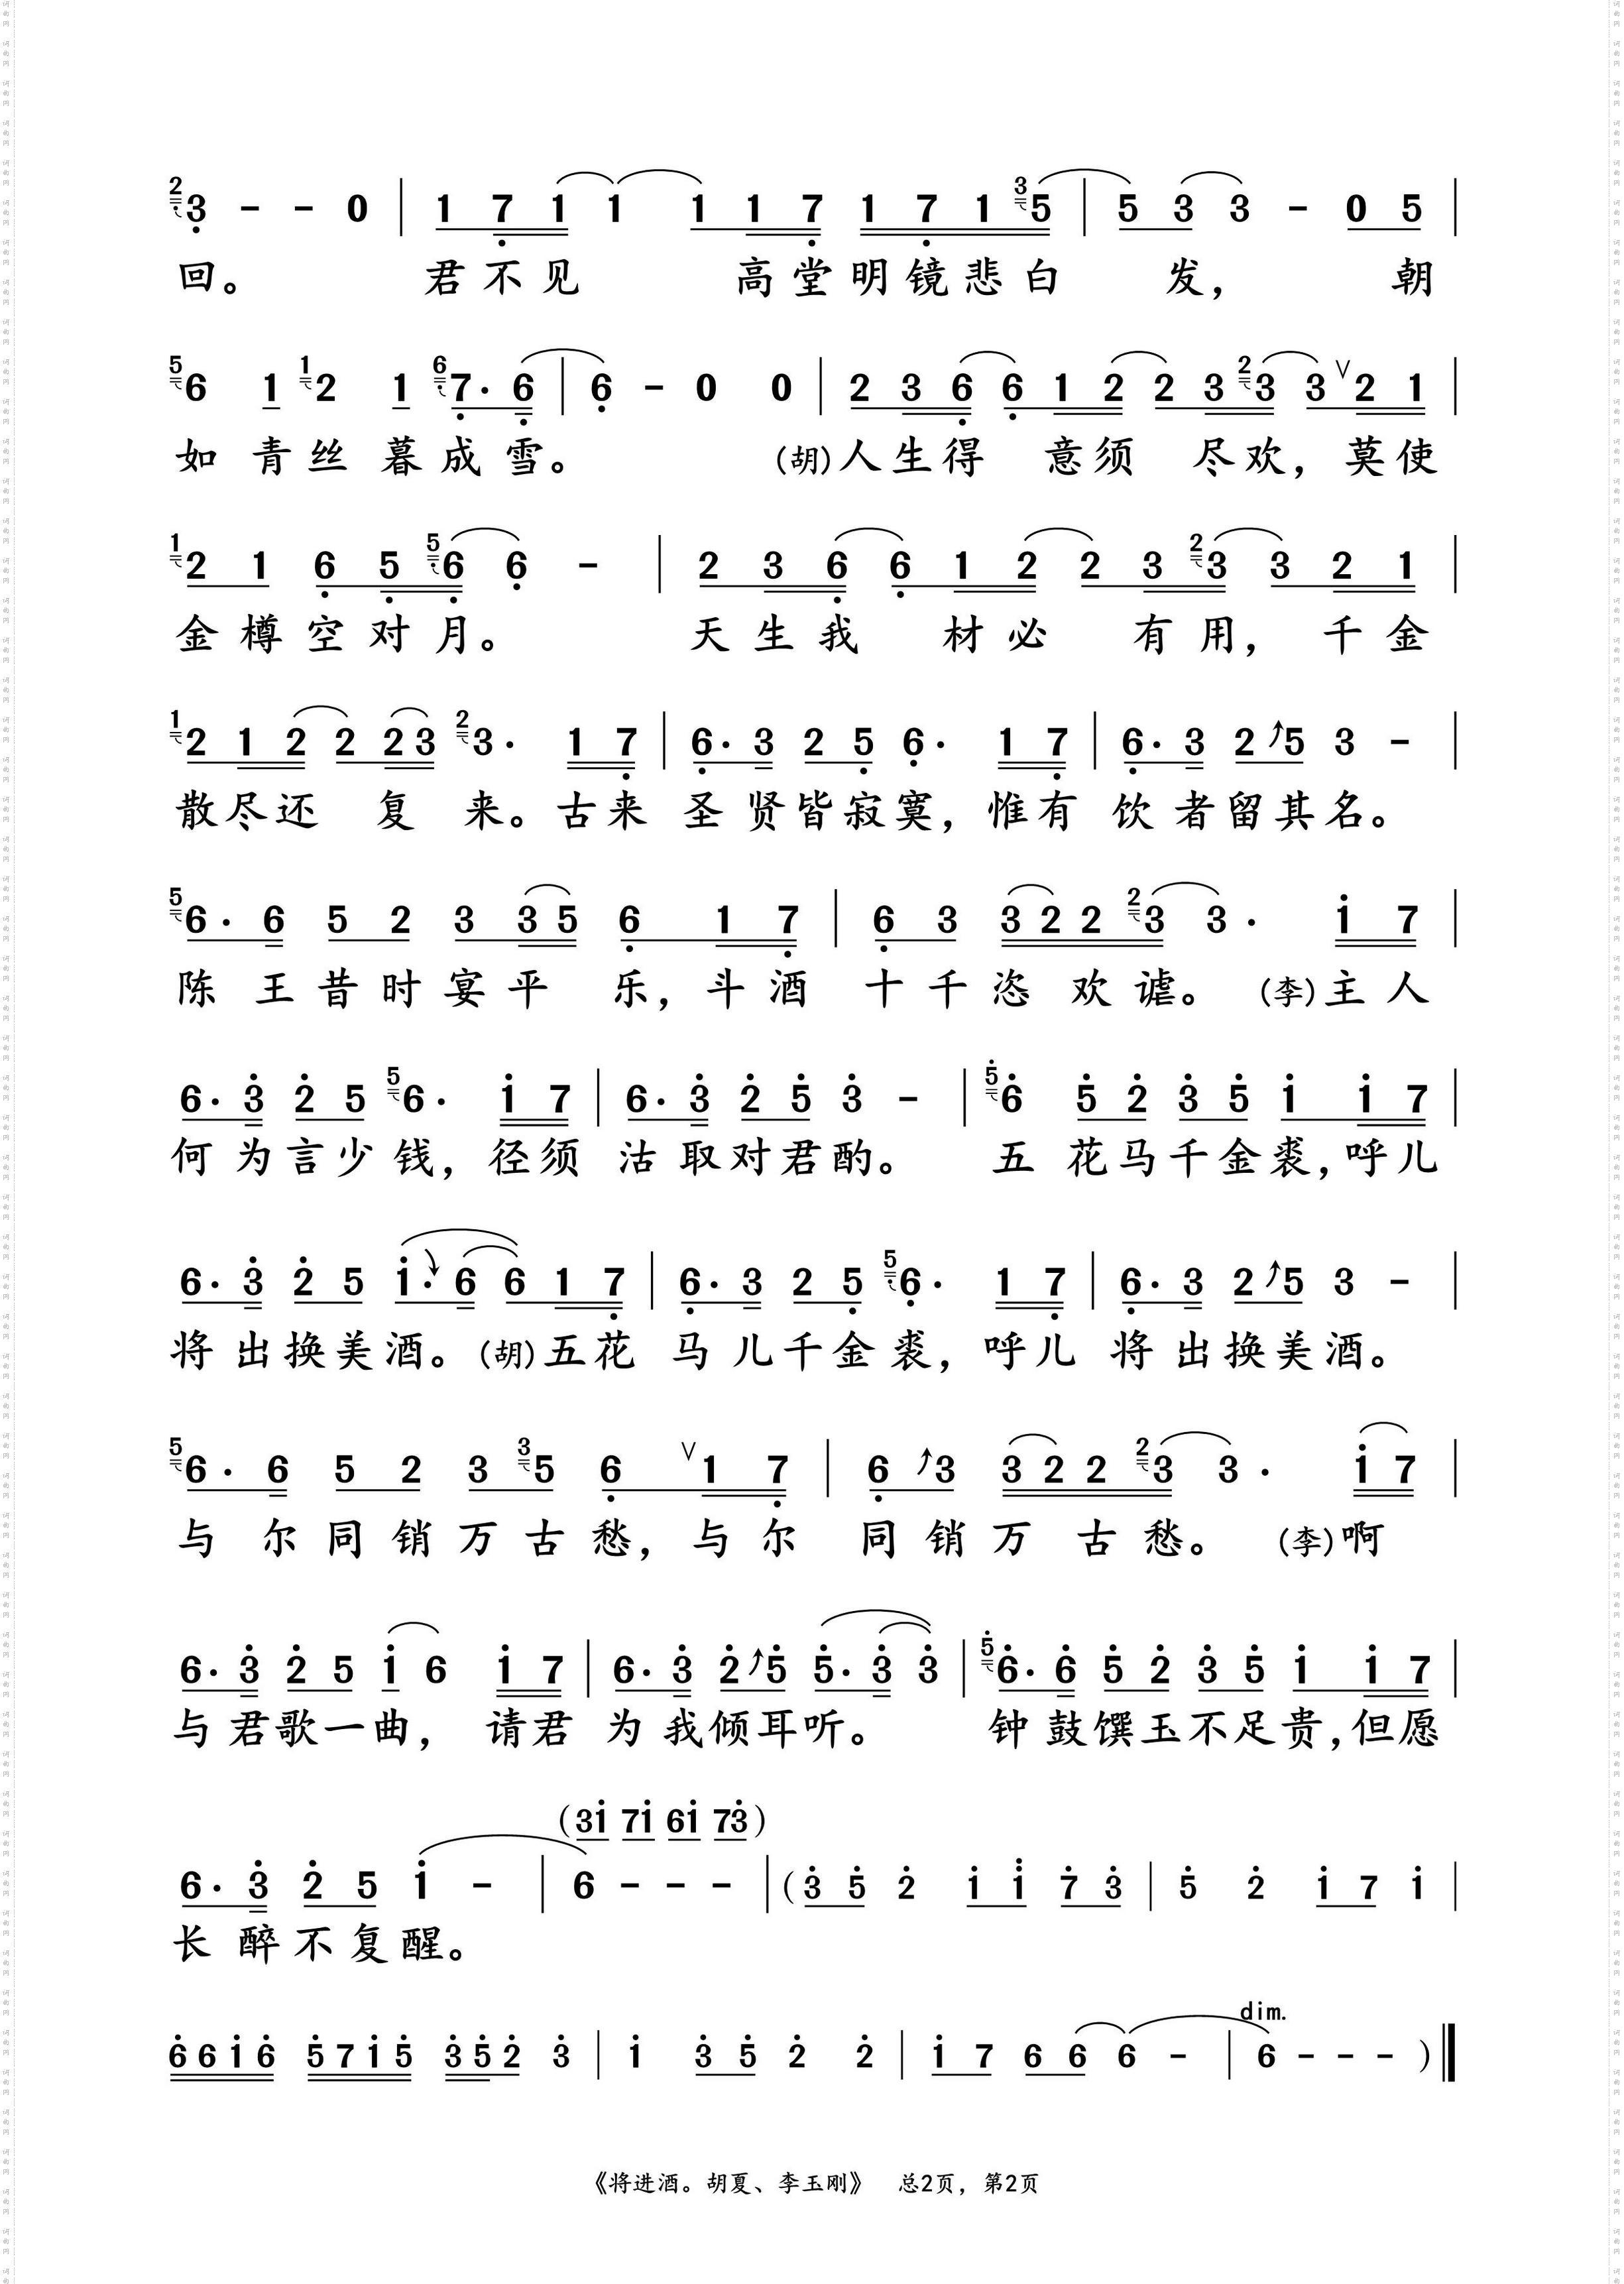 2 3 - - 0 | 1 7 1 1 1 1 7 1 7 1 3 5 | 5 3 3 - 0 5 |
回。 君不见 高堂明镜悲白 发， 朝
5 6 1 1 2 1 6 7· 6 | 6 - 0 0 | 2 3 6 6 1 2 2 3 2 3 3 V 2 1 |
如 青丝 暮成雪。 (胡)人生得 意须 尽欢，莫使
1 2 1 6 5 5 6 6 - | 2 3 6 6 1 2 2 3 2 3 3 2 1 |
金樽空对月。 天生我 材必 有用，千金
1 2 1 2 2 2 3 2 3· 1 7 | 6· 3 2 5 6· 1 7 | 6· 3 2 5 3 - |
散尽还 复 来。古来 圣贤皆寂寞，惟有 饮者留其名。
5 6· 6 5 2 3 3 5 6 1 7 | 6 3 3 2 2 2 3 3· 1 7 |
陈王昔时宴平 乐，斗酒 十千恣 欢谑。(李)主人
6· 3 2 5 5 6· 1 7 | 6· 3 2 5 3 - | 5 6 5 2 3 5 1 1 7 |
何为言少钱，径须 沽取对君酌。 五 花马千金裘，呼儿
6· 3 2 5 1· 6 6 1 7 | 6· 3 2 5 5 6· 1 7 | 6· 3 2 5 3 - |
将出换美酒。(胡)五花 马儿千金裘，呼儿 将出换美酒。
5 6· 6 5 2 3 3 5 6 V 1 7 | 6 3 3 2 2 2 3 3· 1 7 |
与尔同销万古愁，与尔 同销万 古愁。 (李)啊
6· 3 2 5 1 6 1 7 | 6· 3 2 5 5· 3 3 | 5 6· 6 5 2 3 5 1 1 7 |
与君歌一曲， 请君 为我倾耳听。 钟鼓馔玉不足贵，但愿
(31 71 61 73)
6· 3 2 5 1 - | 6 - - - | (3 5 2 1 1 7 3 | 5 2 1 7 1 |
长醉不复醒。
dim.
6 6 1 6 5 7 1 5 3 5 2 3 | 1 3 5 2 2 | 1 7 6 6 6 - | 6 - - - )
《将进酒。胡夏、李玉刚》 总2页，第2页